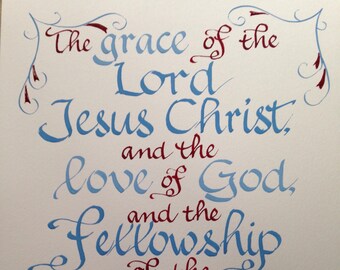 The grace of the
Lord
Jesus Christ,
and the
love of God,
and the
fellowship
of the